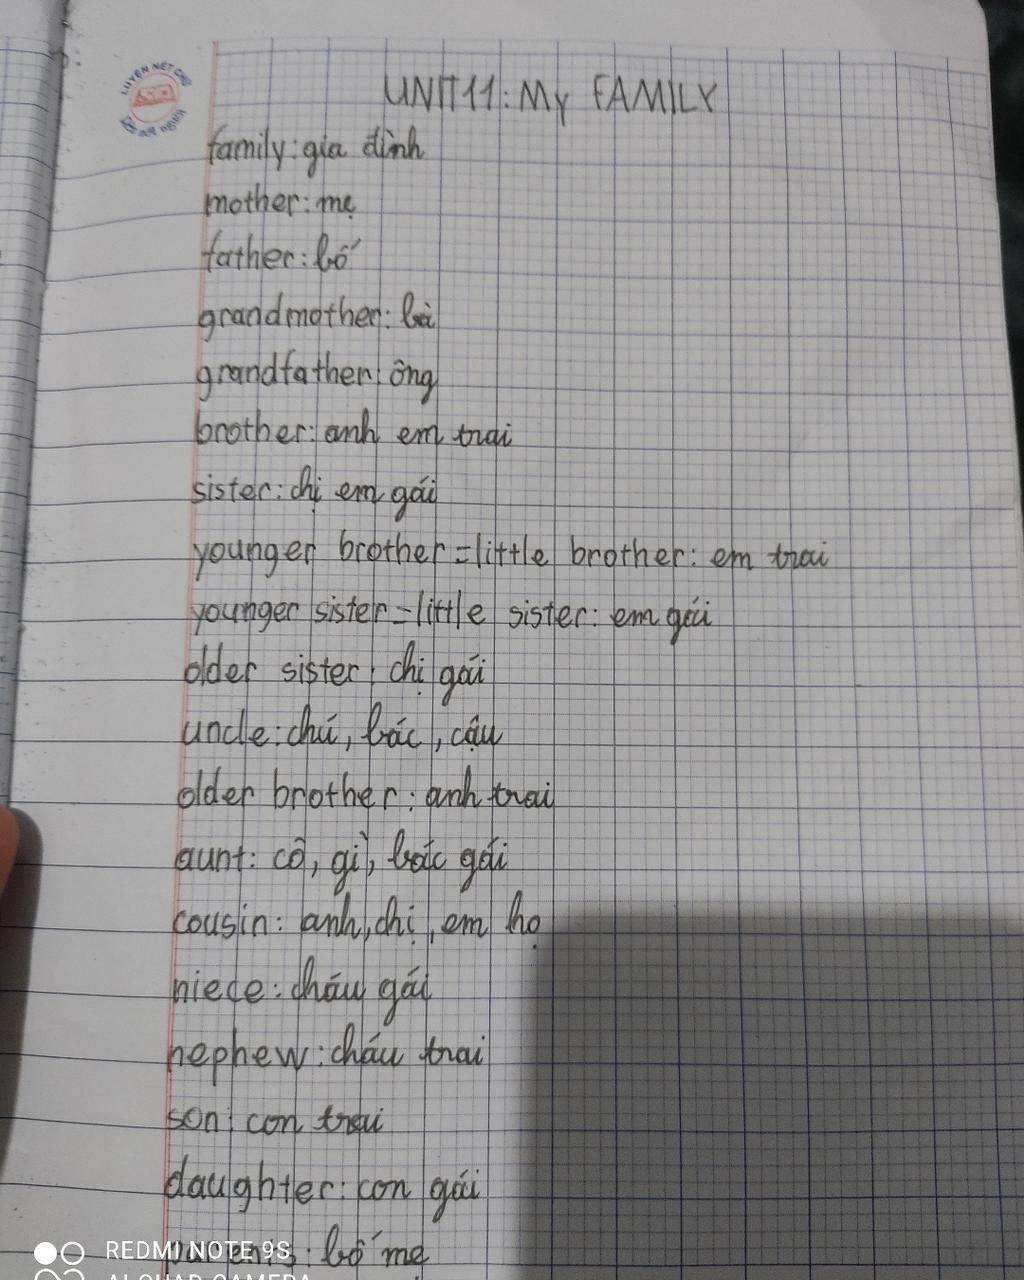 LUYỆN NÉT CHỮ
UNIT 11: My FAMILY
family: gia đình
mother: mẹ
father: bố
grandmother: bà
grandfather: ông
brother: anh em trai
sister: chị em gái
younger brother = little brother: em trai
younger sister = little sister: em gái
older sister: chị gái
uncle: chú, bác, cậu
older brother: anh trai
aunt: cô, gì, bác gái
cousin: anh, chị, em họ
niece: cháu gái
nephew: cháu trai
son: con trai
daughter: con gái
parents: bố mẹ
REDMI NOTE 9S
AI QUAD CAMERA